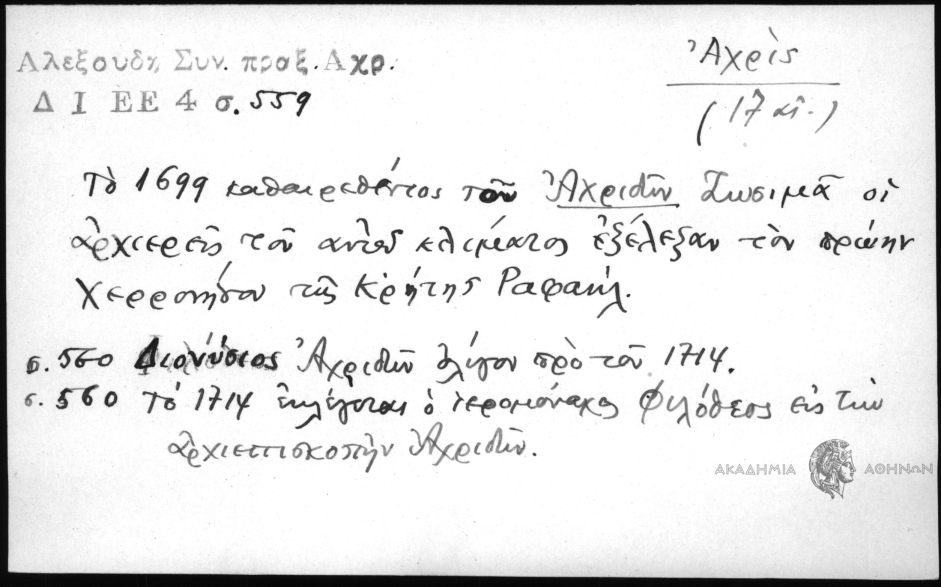 Αλεξουδη Συν. πραξ. Αχρ.
Ἀχρὶς
Δ Ι ΕΕ 4 σ. 559
(17 αἰ.)
Τὸ 1699 καθαιρεθέντος τοῦ Ἀχριδῶν Ζωσιμᾶ οἱ
ἀρχιερεῖς τοῦ αὐτοῦ κλίματος ἐξέλεξαν τὸν πρώην
Χερρονήσου τῆς Κρήτης Ραφαήλ.
σ. 560 Διονύσιος Ἀχριδῶν ὀλίγον πρὸ τοῦ 1714.
σ. 560 Τὸ 1714 ἐκλέγεται ὁ ἱερομόναχος Φιλόθεος εἰς τὴν
ἀρχιεπισκοπὴν Ἀχριδῶν.
ΑΚΑΔΗΜΙΑ ΑΘΗΝΩΝ